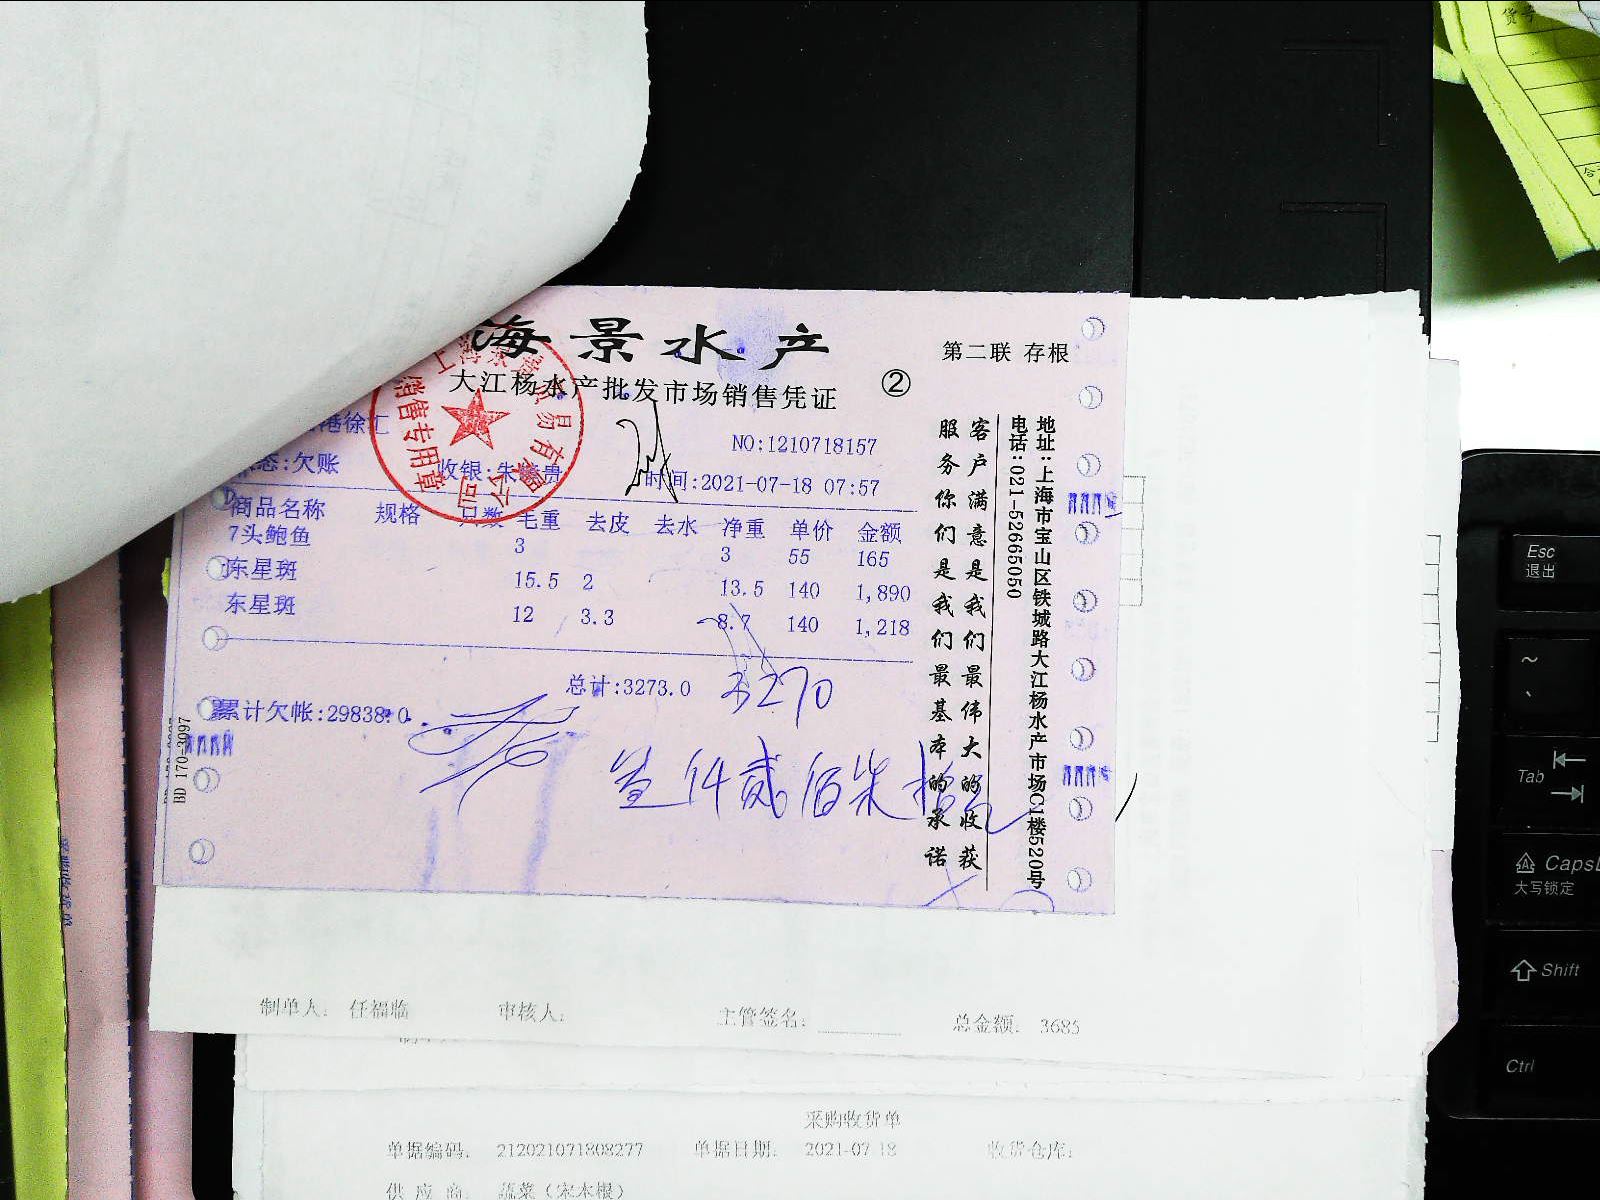 海景水产
大江杨水产批发市场销售凭证
②
第二联 存根
港徐汇
NO:1210718157
态:欠账
收银:朱
贵
时间:2021-07-18 07:57
商品名称 规格 只数 毛重 去皮 去水 净重 单价 金额
7头鲍鱼 3 3 55 165
东星斑 15.5 2 13.5 140 1,890
东星斑 12 3.3 8.7 140 1,218
总计:3273.0
3270
累计欠帐:29838.0
仟贰佰柒拾
客户满意是我们最伟大的收获
服务你们是我们最基本的承诺
地址:上海市宝山区铁城路大江杨水产市场C1楼520号
电话:021-52665050
销售专用章
BD 170-3097
制单人: 任福临 审核人: 主管签名: 总金额: 3685
采购收货单
单据编码: 212021071808277 单据日期: 2021-07-18 收货仓库:
供应商: 蔬菜(宋木根)
货号
Esc
退出
~
Tab
Caps
大写锁定
Shift
Ctrl